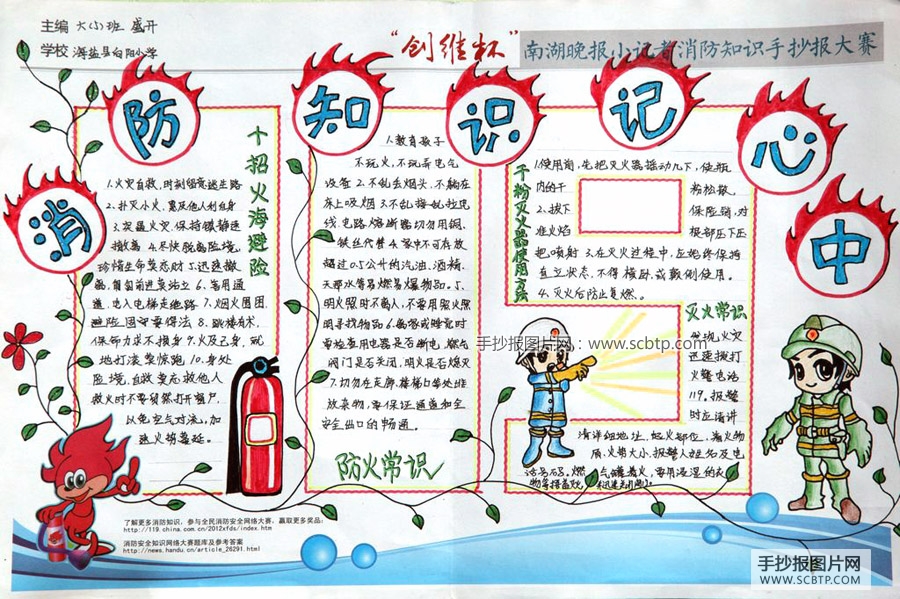 主编 大(6)班 盛开
学校 海盐县向阳小学
“创维杯”
南湖晚报小记者消防知识手抄报大赛
消防知识记心中
十招火海避险
1.火灾自救,时刻留意逃生路
2.扑灭小火,惠及他人利自身
3.突遇火灾,保持镇静速
撤离 4.尽快脱离险境,
珍惜生命莫恋财 5.迅速撤
离,匍匐前进莫站立 6.善用通
道,莫入电梯走绝路 7.烟火围困
避险固守要得法 8.跳楼有术,
保命力求不损身 9.火及己身,就
地打滚莫惊跑 10.身处
险境,自救莫忘救他人
救火时不要贸然打开门窗,
以免空气对流,加
速火势蔓延。
1.教育孩子
不玩火,不玩弄电气
设备 2.不乱丢烟头,不躺在
床上吸烟 3.不乱接乱拉电
线,电路熔断器切勿用铜、
铁丝代替 4.家中不可存放
超过0.5公升的汽油、酒精、
天那水等易燃易爆物品。5.
明火照时不离人,不要用照火照
明寻找物品 6.离家或睡觉时
要检查用电器是否断电,燃气
阀门是否关闭,明火是否熄灭
7.切勿在走廊、楼梯口等处堆
放杂物,要保证通道和全
安全出口的畅通。
防火常识
干粉灭火器使用方法
1.使用前,先把灭火器摇动几下,使瓶
内的干 粉松散。
2.拔下 保险销,对
准火焰 根部压下压
把喷射 3.在灭火过程中,应始终保持
直立状态,不得横卧或颠倒使用。
4.灭火后防止复燃。
灭火常识
发现火灾
迅速拨打
火警电话
119。报警
时应请讲
清详细地址、起火部位、着火物
质、火势大小、报警人姓名及电
手抄报图片网:www.scbtp.com
了解更多消防知识,参与全民消防安全网络大赛,赢取更多奖品:
http://119.china.com.cn/2012xfds/index.htm
消防安全知识网络大赛题库及参考答案
http://news.handu.cn/article_26291.html
手抄报图片网
WWW.SCBTP.COM